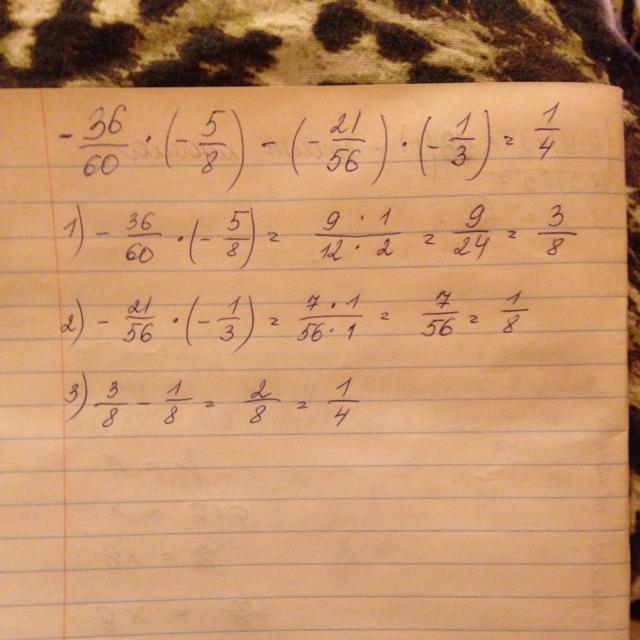 -36/60 · (-5/8) - (-21/56) · (-1/3) = 1/4
1) -36/60 · (-5/8) = 9 · 1/12 · 2 = 9/24 = 3/8
2) -21/56 · (-1/3) = 7 · 1/56 · 1 = 7/56 = 1/8
3) 3/8 - 1/8 = 2/8 = 1/4